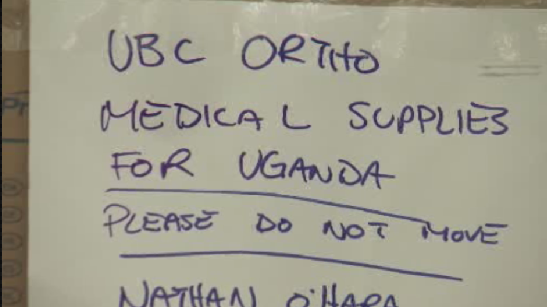 UBC ORTHO
MEDICAL SUPPLIES
FOR UGANDA
PLEASE DO NOT MOVE
NATHAN O'HARA